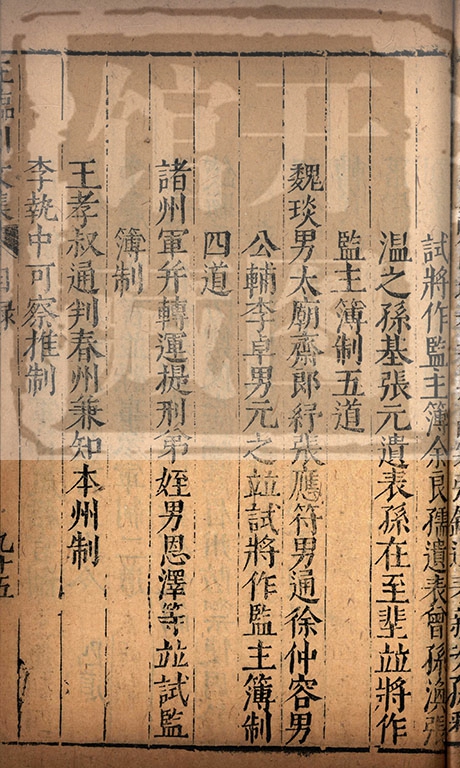 試將作監主簿余良孺遺表曾孫渙張
温之孫基張元遺表孫在至鞏並將作
監主簿制五道
魏琰男太廟齋郎紆張應符男通徐仲容男
公輔李卓男元之並試將作監主簿制
四道
諸州軍并轉運提刑弟姪男恩澤等並試監
簿制
王孝叔通判春州兼知本州制
李執中可察推制
王臨川文集 目録
九十五
开 馆